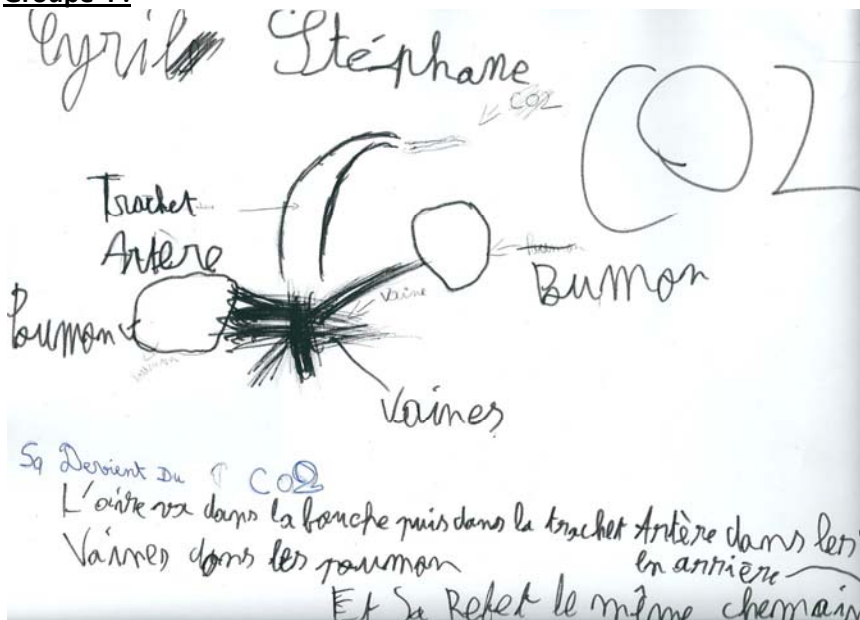 Groupe
Cyril Stéphane
CO2
CO2
Trachet
Artère
Poumon
Poumon
Vaine
Vaines
Sa Devient Du CO2
L'aire va dans la bouche puis dans la trachet Artère dans les
Vaines dans les poumon
en arrière
Et Sa Refet le même chemain